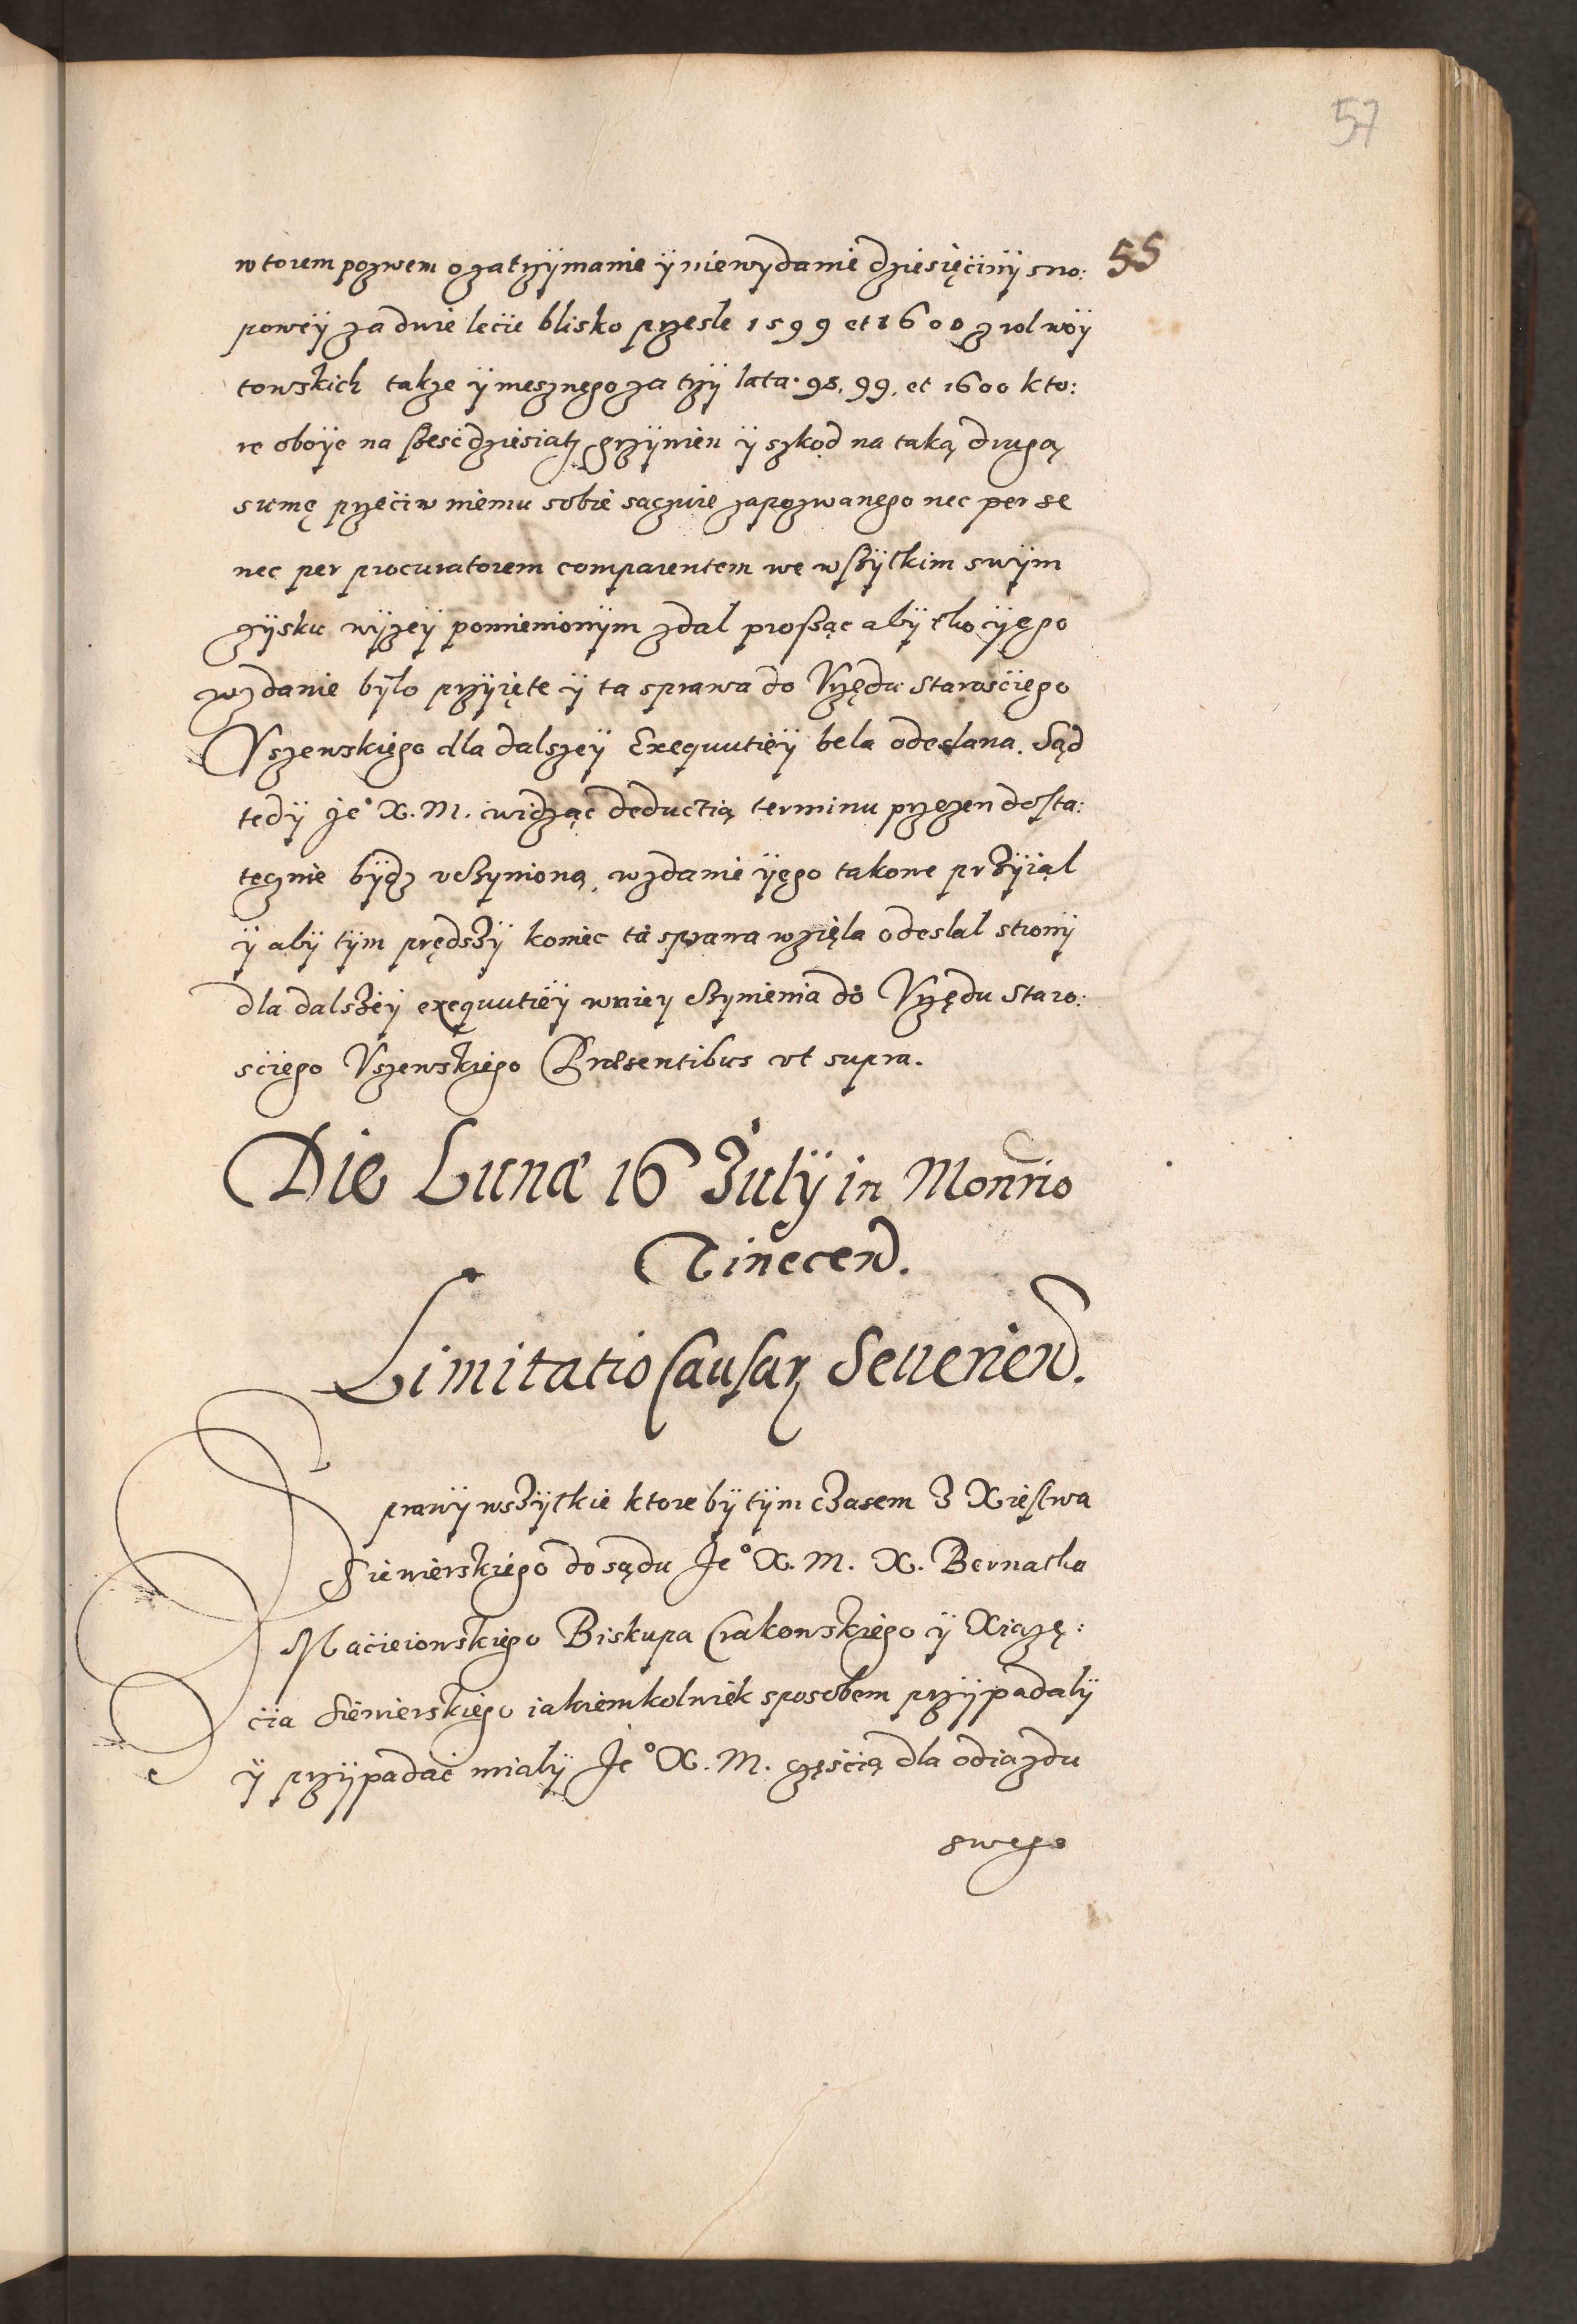 57
55
wtorem pozwem o zatrzÿmanie ÿ niewydanie dziesięcinÿ sno:
powëÿ za dwie lecie blisko przesle 1599 et 1600 z rol wóÿ
towskich takze ÿ mesznego za trzÿ lata. 98. 99. et 1600 kto:
re oboÿe na sześćdziesiątz grzÿwien ÿ szkod na taką drugą
sumę przeciw niemu sobie sączwie zapozwanego nec per se
nec per procuratorem comparentem we wszÿtkim swÿm
zÿsku wÿzeÿ pomienionÿm zdal prosząc abÿ tho ÿego
wzdanie bÿlo przÿięte ÿ ta sprawa do Vrzędu Starosciego
Vszewskiego dla dalszeÿ Exequutieÿ bela odeslana. Sąd
tedÿ Je° X. M. widząc deductią terminu przezen dosta:
tecznie bÿdz vczynioną, wzdanie ÿego takowe przÿiąl
ÿ abÿ tÿm prędszÿ koniec ta sprawa wzięla odeslal stronÿ
dla dalszeÿ exequutieÿ wniey czynienia do Vrzędu Staro:
sciego Vszewskiego Præsentibus vt supra.
Die Lunæ 16 Julÿ in Monrio
Tinecen.
Limitatio Causarꝝ Seuerien.
Sprawÿ wszÿtkie ktore bÿ tÿm czasem z Xiestwa
Siewierskiego do sądu Je° X. M. X. Bernatha
Macieiowskiego Biskupa Crakowskiego ÿ Xiązę:
cia Siewierskiego iakiemkolwiek sposobem przÿpadalÿ
ÿ przÿpadać mialÿ Je° X. M. częscią dla odiazdu
swego